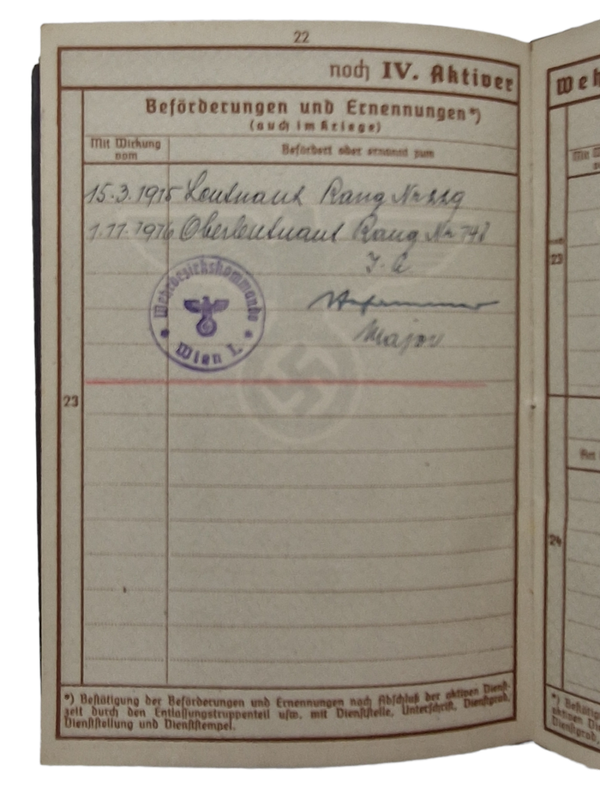 22
noch IV. Aktiver
Beförderungen und Ernennungen*)
(auch im Kriege)
Mit Wirkung
vom
Befördert oder ernannt zum
15.3.1915 Leutnant Rang Nr 229
1.11.1916 Oberleutnant Rang Nr 748
Wehrbezirkskommando
Wien I.
Major
23
*) Bestätigung der Beförderungen und Ernennungen nach Abschluß der aktiven Dienst-
zeit durch den Entlassungstruppenteil usw. mit Dienststelle, Unterschrift, Dienstgrad,
Dienststellung und Dienststempel.
Weh
23
24